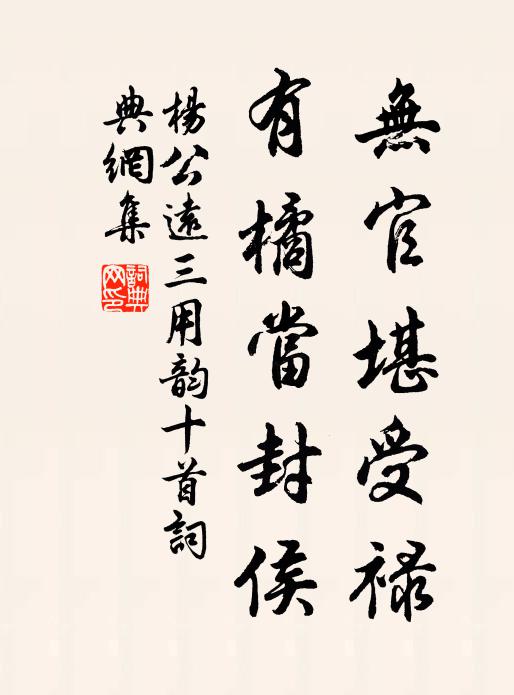 無官堪受祿
有橘當封侯
楊公遠三用韵十首詞
典網集
詞典
网印